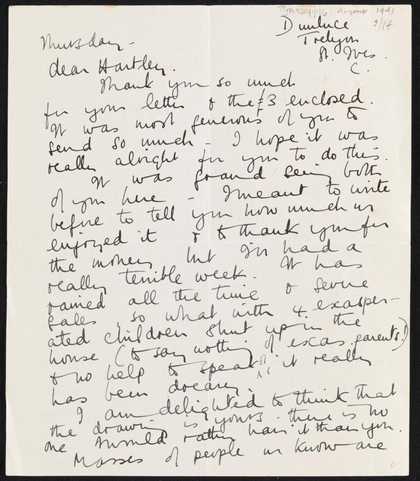 Thursday August 1941
2/14
Dunluce
Trelyon
St. Ives
C.
Thursday -
dear Hartley.
Thank you so much
for your letter & the £3 enclosed.
It was most generous of you to
send so much - I hope it was
really alright for you to do this.
It was grand seeing both
of you here - I meant to write
before to tell you how much we
enjoyed it & to thank you for
the money but I've had a
really terrible week. It has
rained all the time & severe
gales so what with 4 exasper-
ated children shut up in the
house (to say nothing of exas. parents.)
& no help to speak of it really
has been dreary.
I am delighted to think that
the drawing is yours. there is no
one I would rather have it than you.
Masses of people we know are